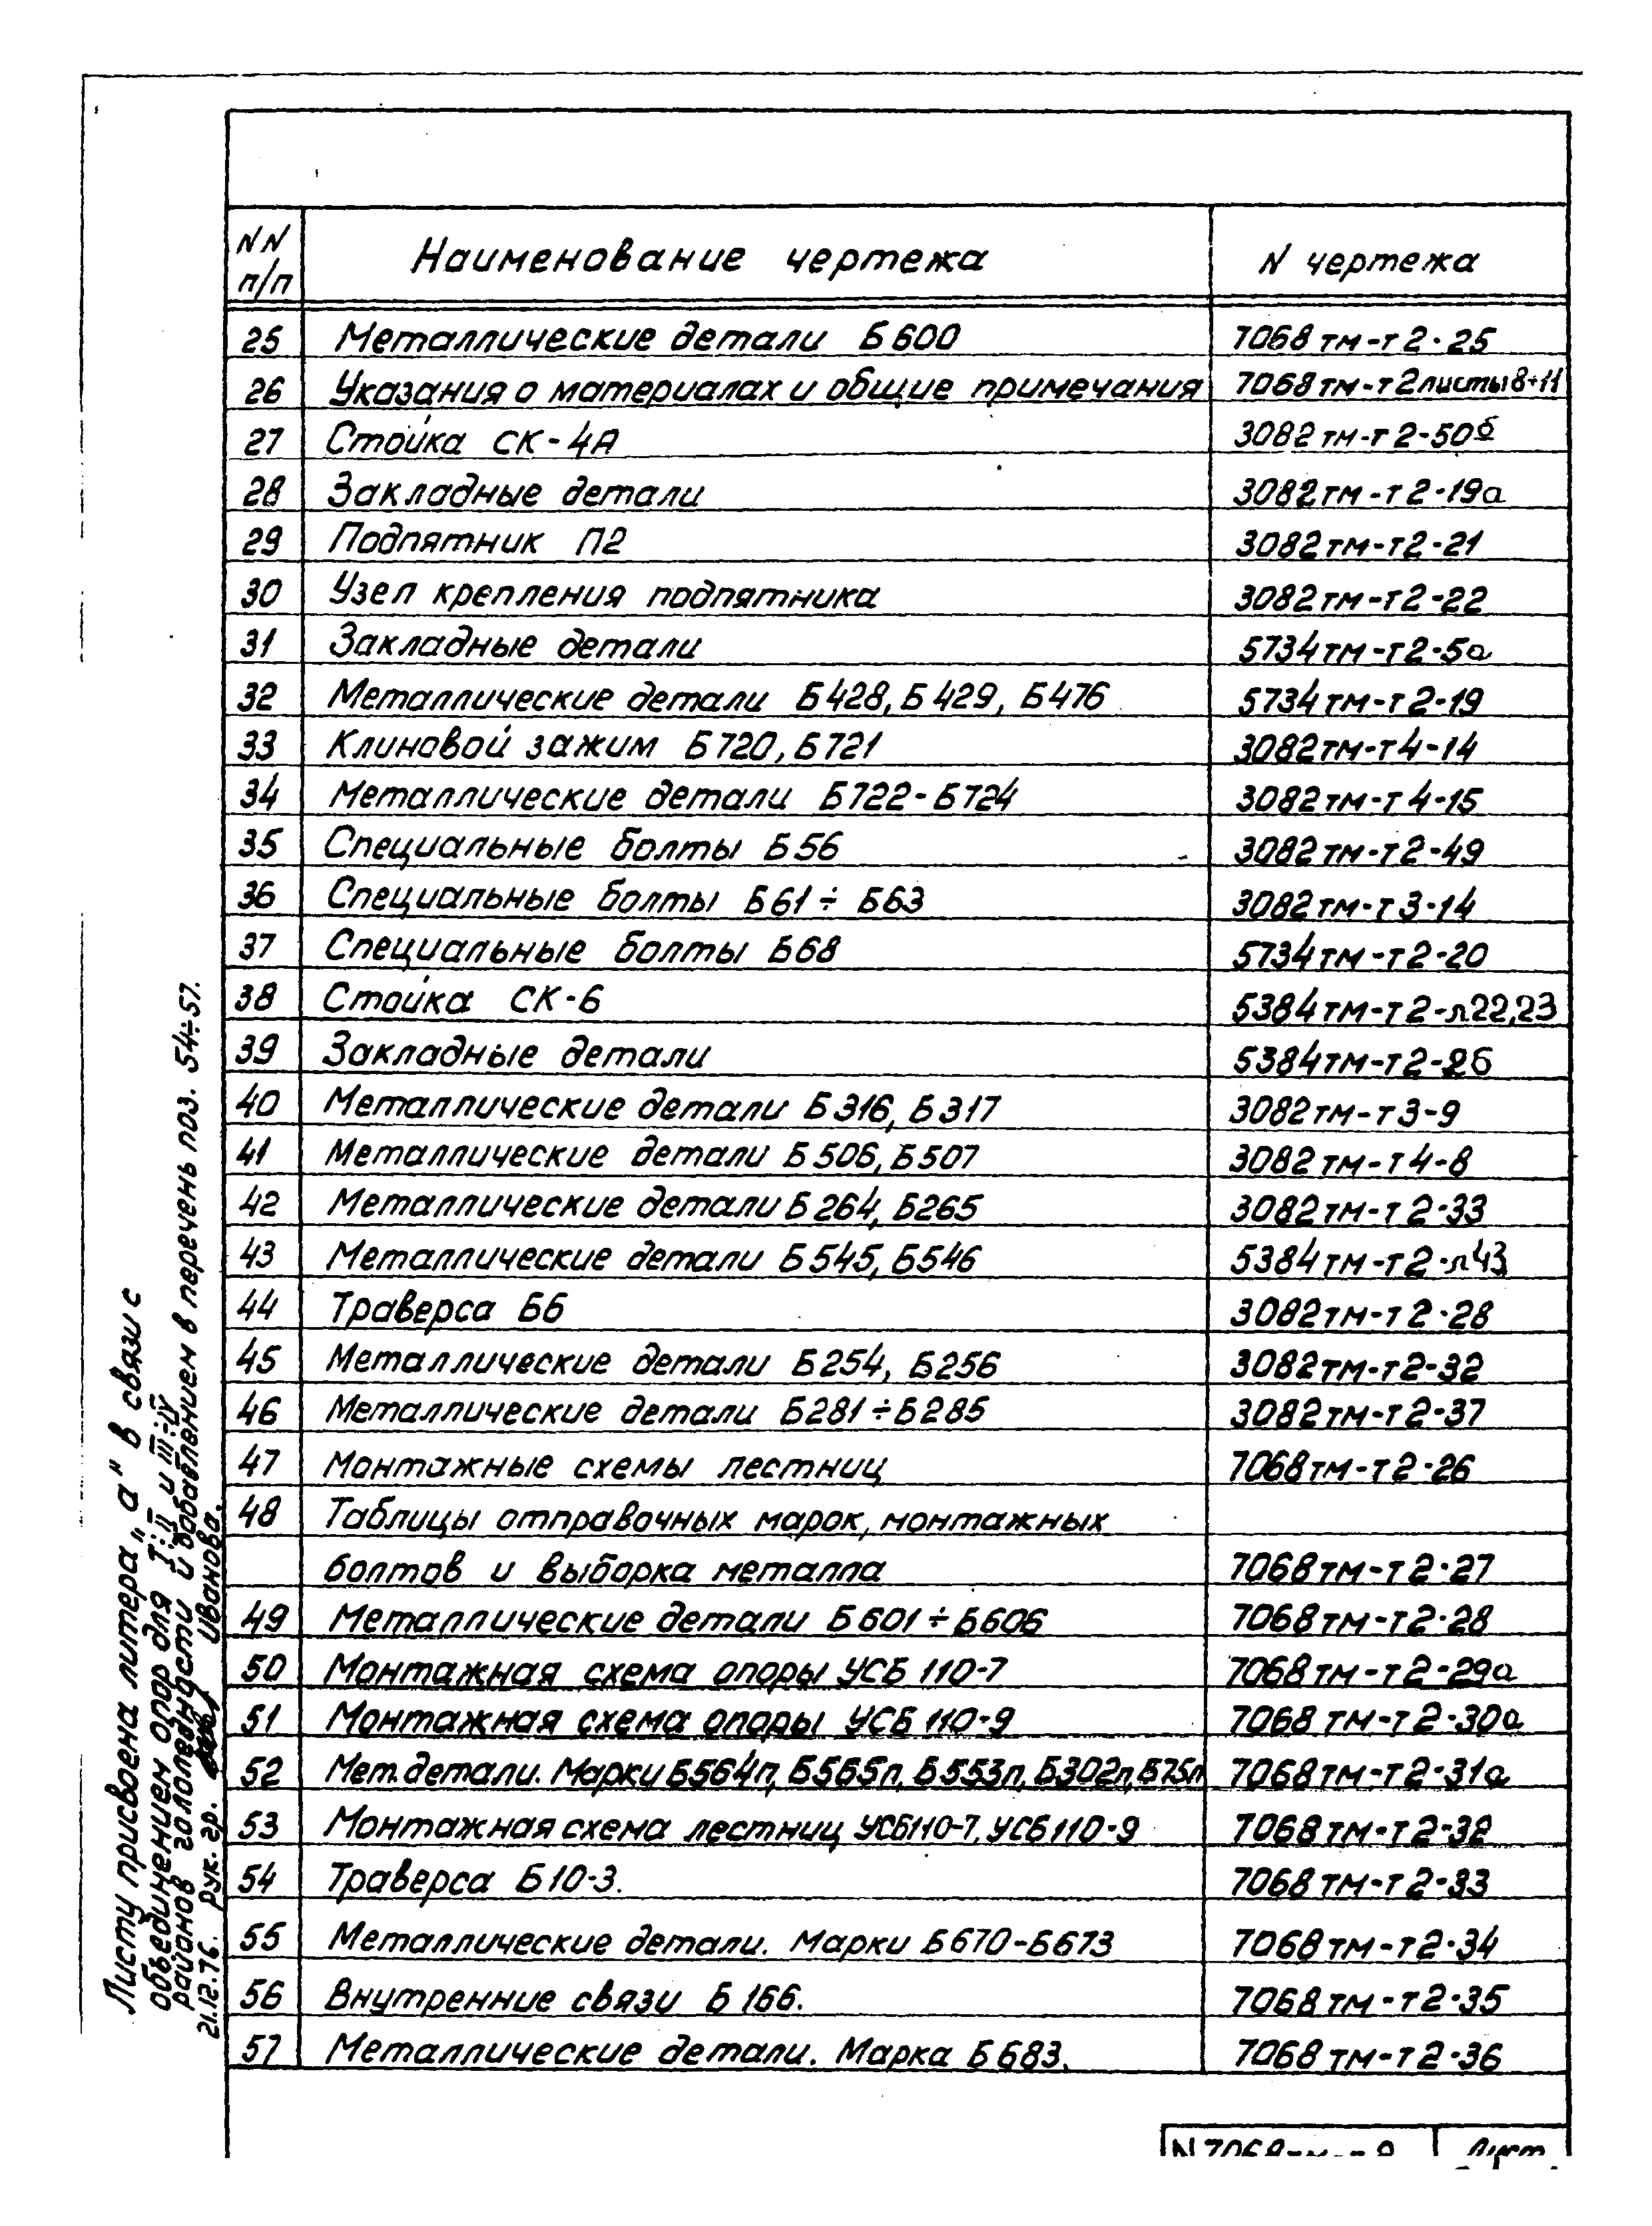 NN п/п Наименование чертежа N чертежа
25 Металлические детали Б600 7068тм-т2-25
26 Указания о материалах и общие примечания 7068тм-т2 листы 8÷11
27 Стойка СК-4А 3082тм-т2-50б
28 Закладные детали 3082тм-т2-19а
29 Подпятник П2 3082тм-т2-21
30 Узел крепления подпятника 3082тм-т2-22
31 Закладные детали 5734тм-т2-5а
32 Металлические детали Б428, Б429, Б476 5734тм-т2-19
33 Клиновой зажим Б720, Б721 3082тм-т4-14
34 Металлические детали Б722-Б724 3082тм-т4-15
35 Специальные болты Б56 3082тм-т2-49
36 Специальные болты Б61÷Б63 3082тм-т3-14
37 Специальные болты Б68 5734тм-т2-20
38 Стойка СК-6 5384тм-т2-л22,23
39 Закладные детали 5384тм-т2-26
40 Металлические детали Б316, Б317 3082тм-т3-9
41 Металлические детали Б506, Б507 3082тм-т4-8
42 Металлические детали Б264, Б265 3082тм-т2-33
43 Металлические детали Б545, Б546 5384тм-т2-л43
44 Траверса Б6 3082тм-т2-28
45 Металлические детали Б254, Б256 3082тм-т2-32
46 Металлические детали Б281÷Б285 3082тм-т2-37
47 Монтажные схемы лестниц 7068тм-т2-26
48 Таблицы отправочных марок, монтажных
болтов и выборка металла 7068тм-т2-27
49 Металлические детали Б601÷Б606 7068тм-т2-28
50 Монтажная схема опоры УСБ 110-7 7068тм-т2-29а
51 Монтажная схема опоры УСБ 110-9 7068тм-т2-30а
52 Мет. детали. Марки Б564п, Б565п, Б553п, Б302п, Б75п 7068тм-т2-31а
53 Монтажная схема лестниц УСБ110-7, УСБ110-9 7068тм-т2-32
54 Траверса Б10-3. 7068тм-т2-33
55 Металлические детали. Марки Б670-Б673 7068тм-т2-34
56 Внутренние связи Б166. 7068тм-т2-35
57 Металлические детали. Марка Б683. 7068тм-т2-36
Листу присвоена литера „а" в связи с
объединением опор для I÷II и III÷IV
районов гололедности и добавлением в перечень поз. 54÷57.
21.12.76. Рук. гр. Иванова.
Лист